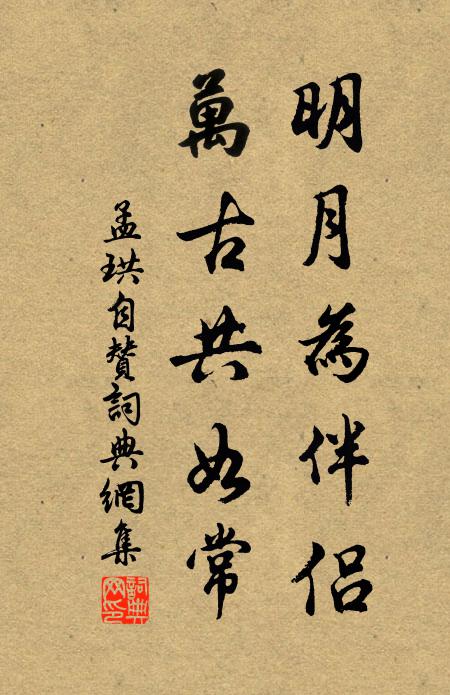 明月為伴侶
萬古共如常
孟珙自贊詞典網集
詞典网印